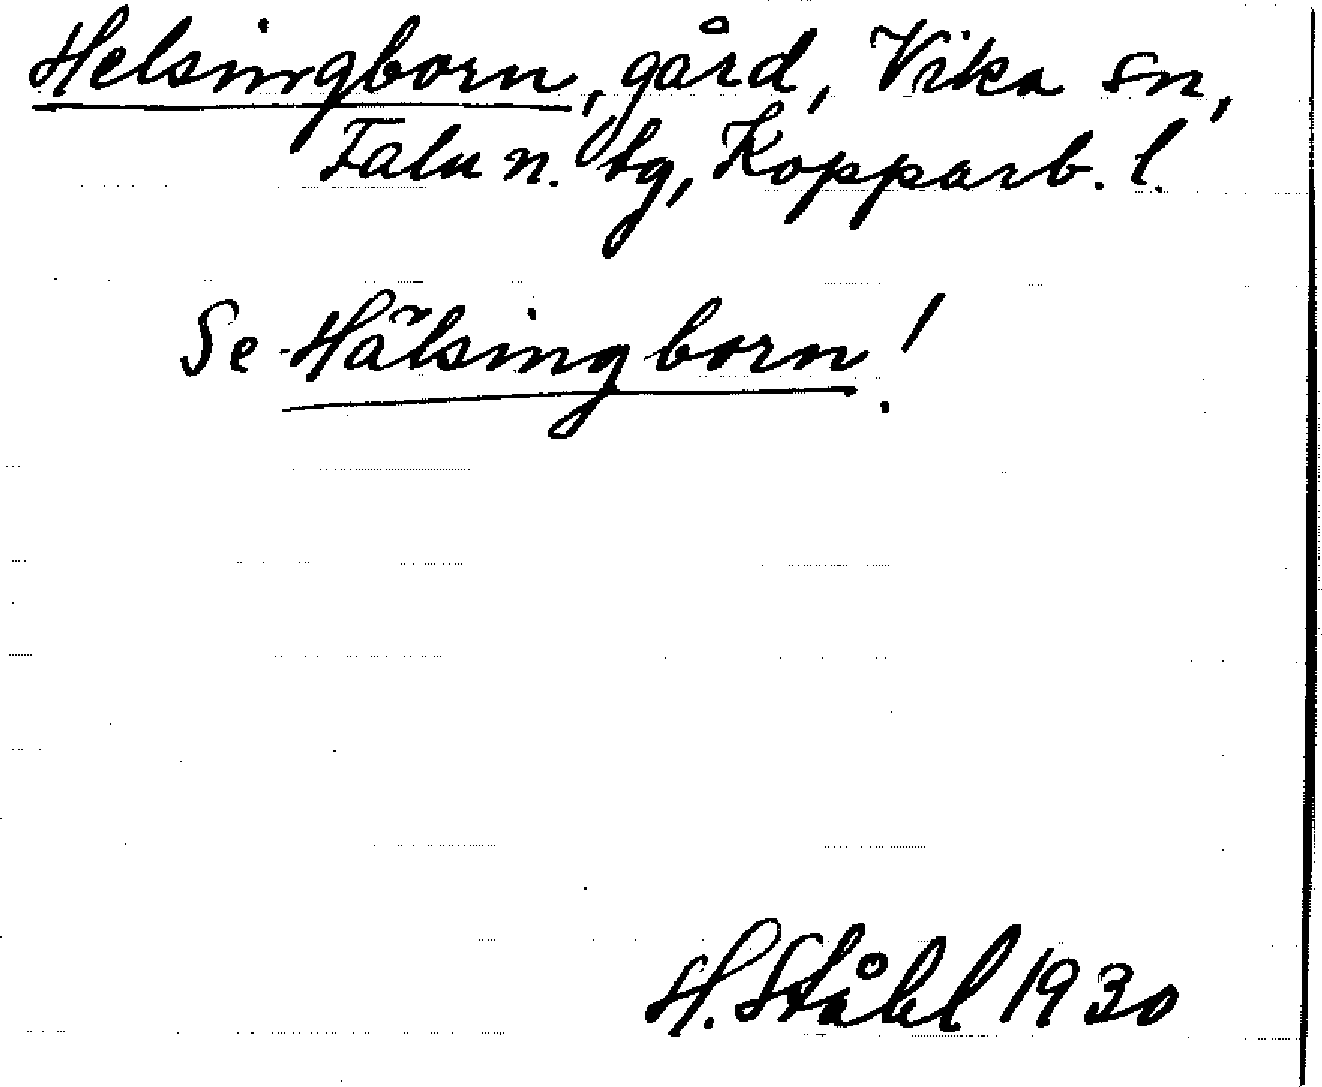 Helsingborn, gård, Vika sn,
Falu n. tg, Kopparb. l.
Se Hälsingborn!
H. Ståhl 1930